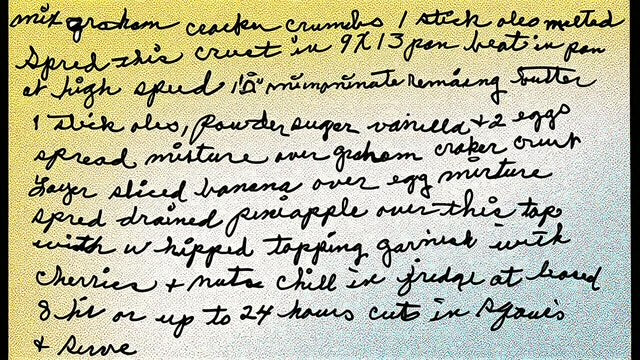 mix graham cracker crumbs 1 stick oleo melted
Spred this crust in 9X13 pan beat in pan
at high speed remaing butter
1 stick oleo, powder suger vanilla + 2 eggs
spread mixture over graham craker crust
Layer sliced banana over egg mixture
spred drained pineapple over this top
with whipped topping garnish with
cherries + nuts chill in fridge at least
8 hr or up to 24 hours cuts in sqaues
+ serve